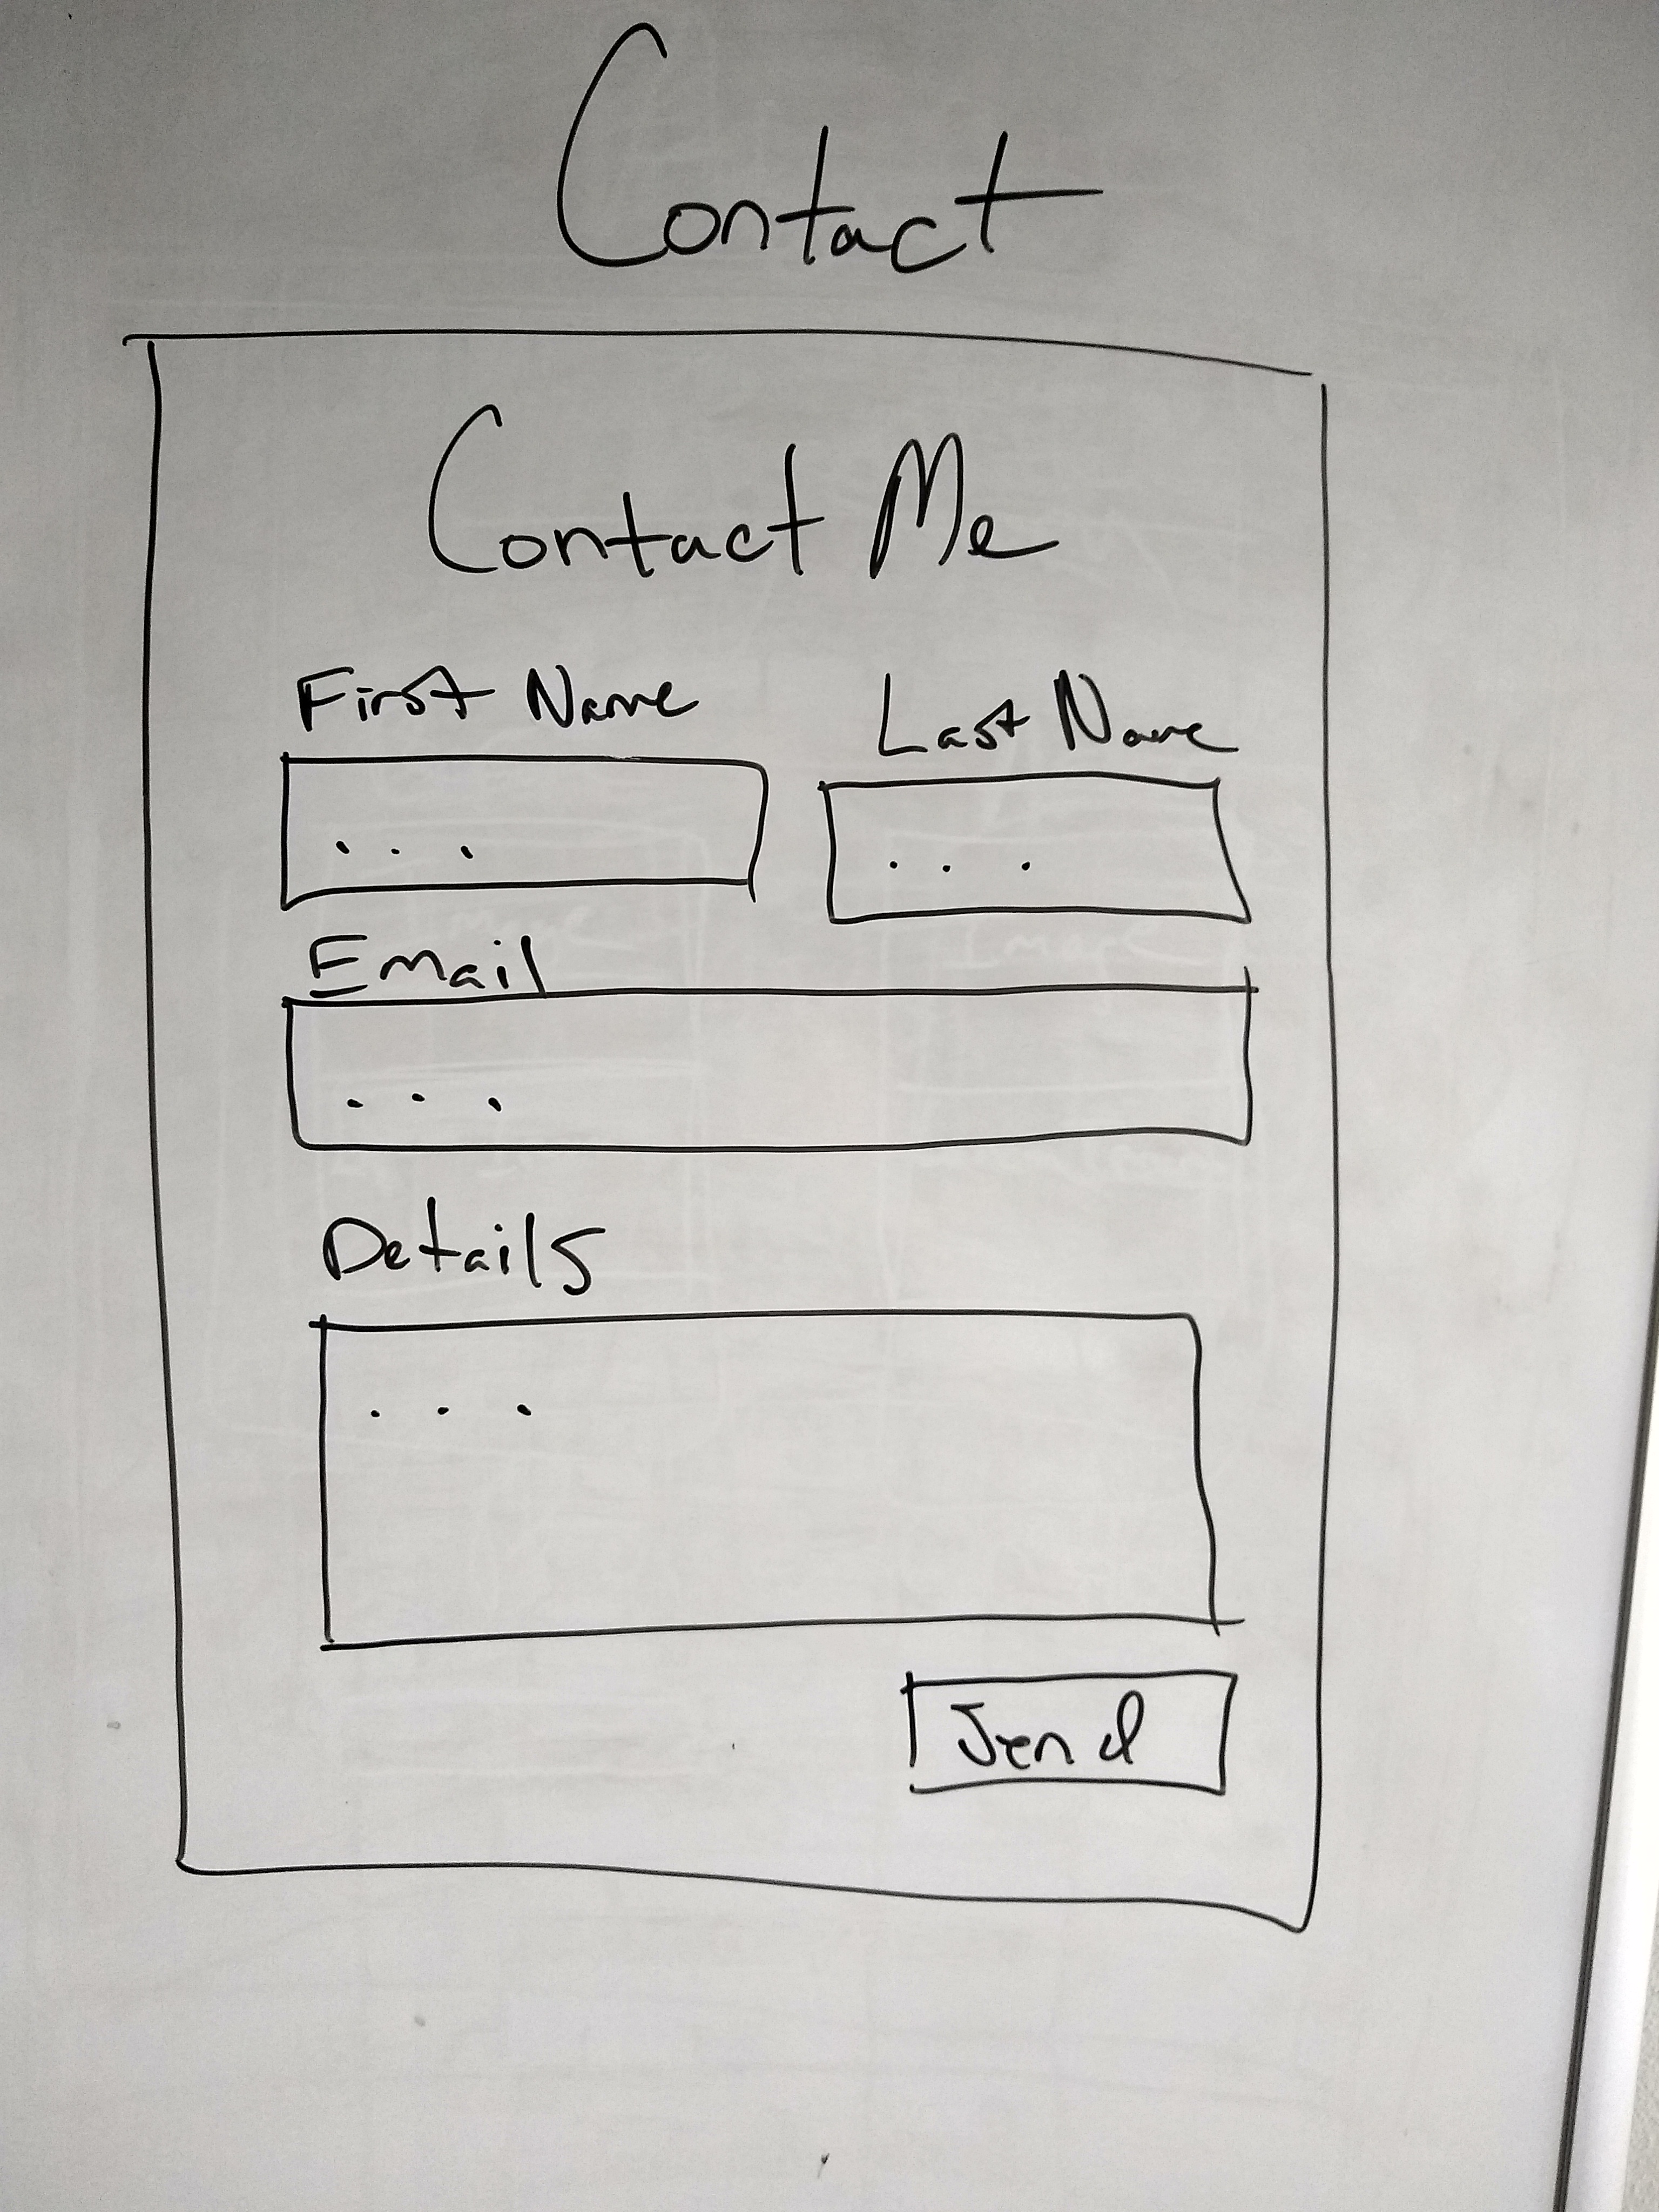 Contact
Contact Me
First Name Last Name
... ...
Email
...
Details
...
Send